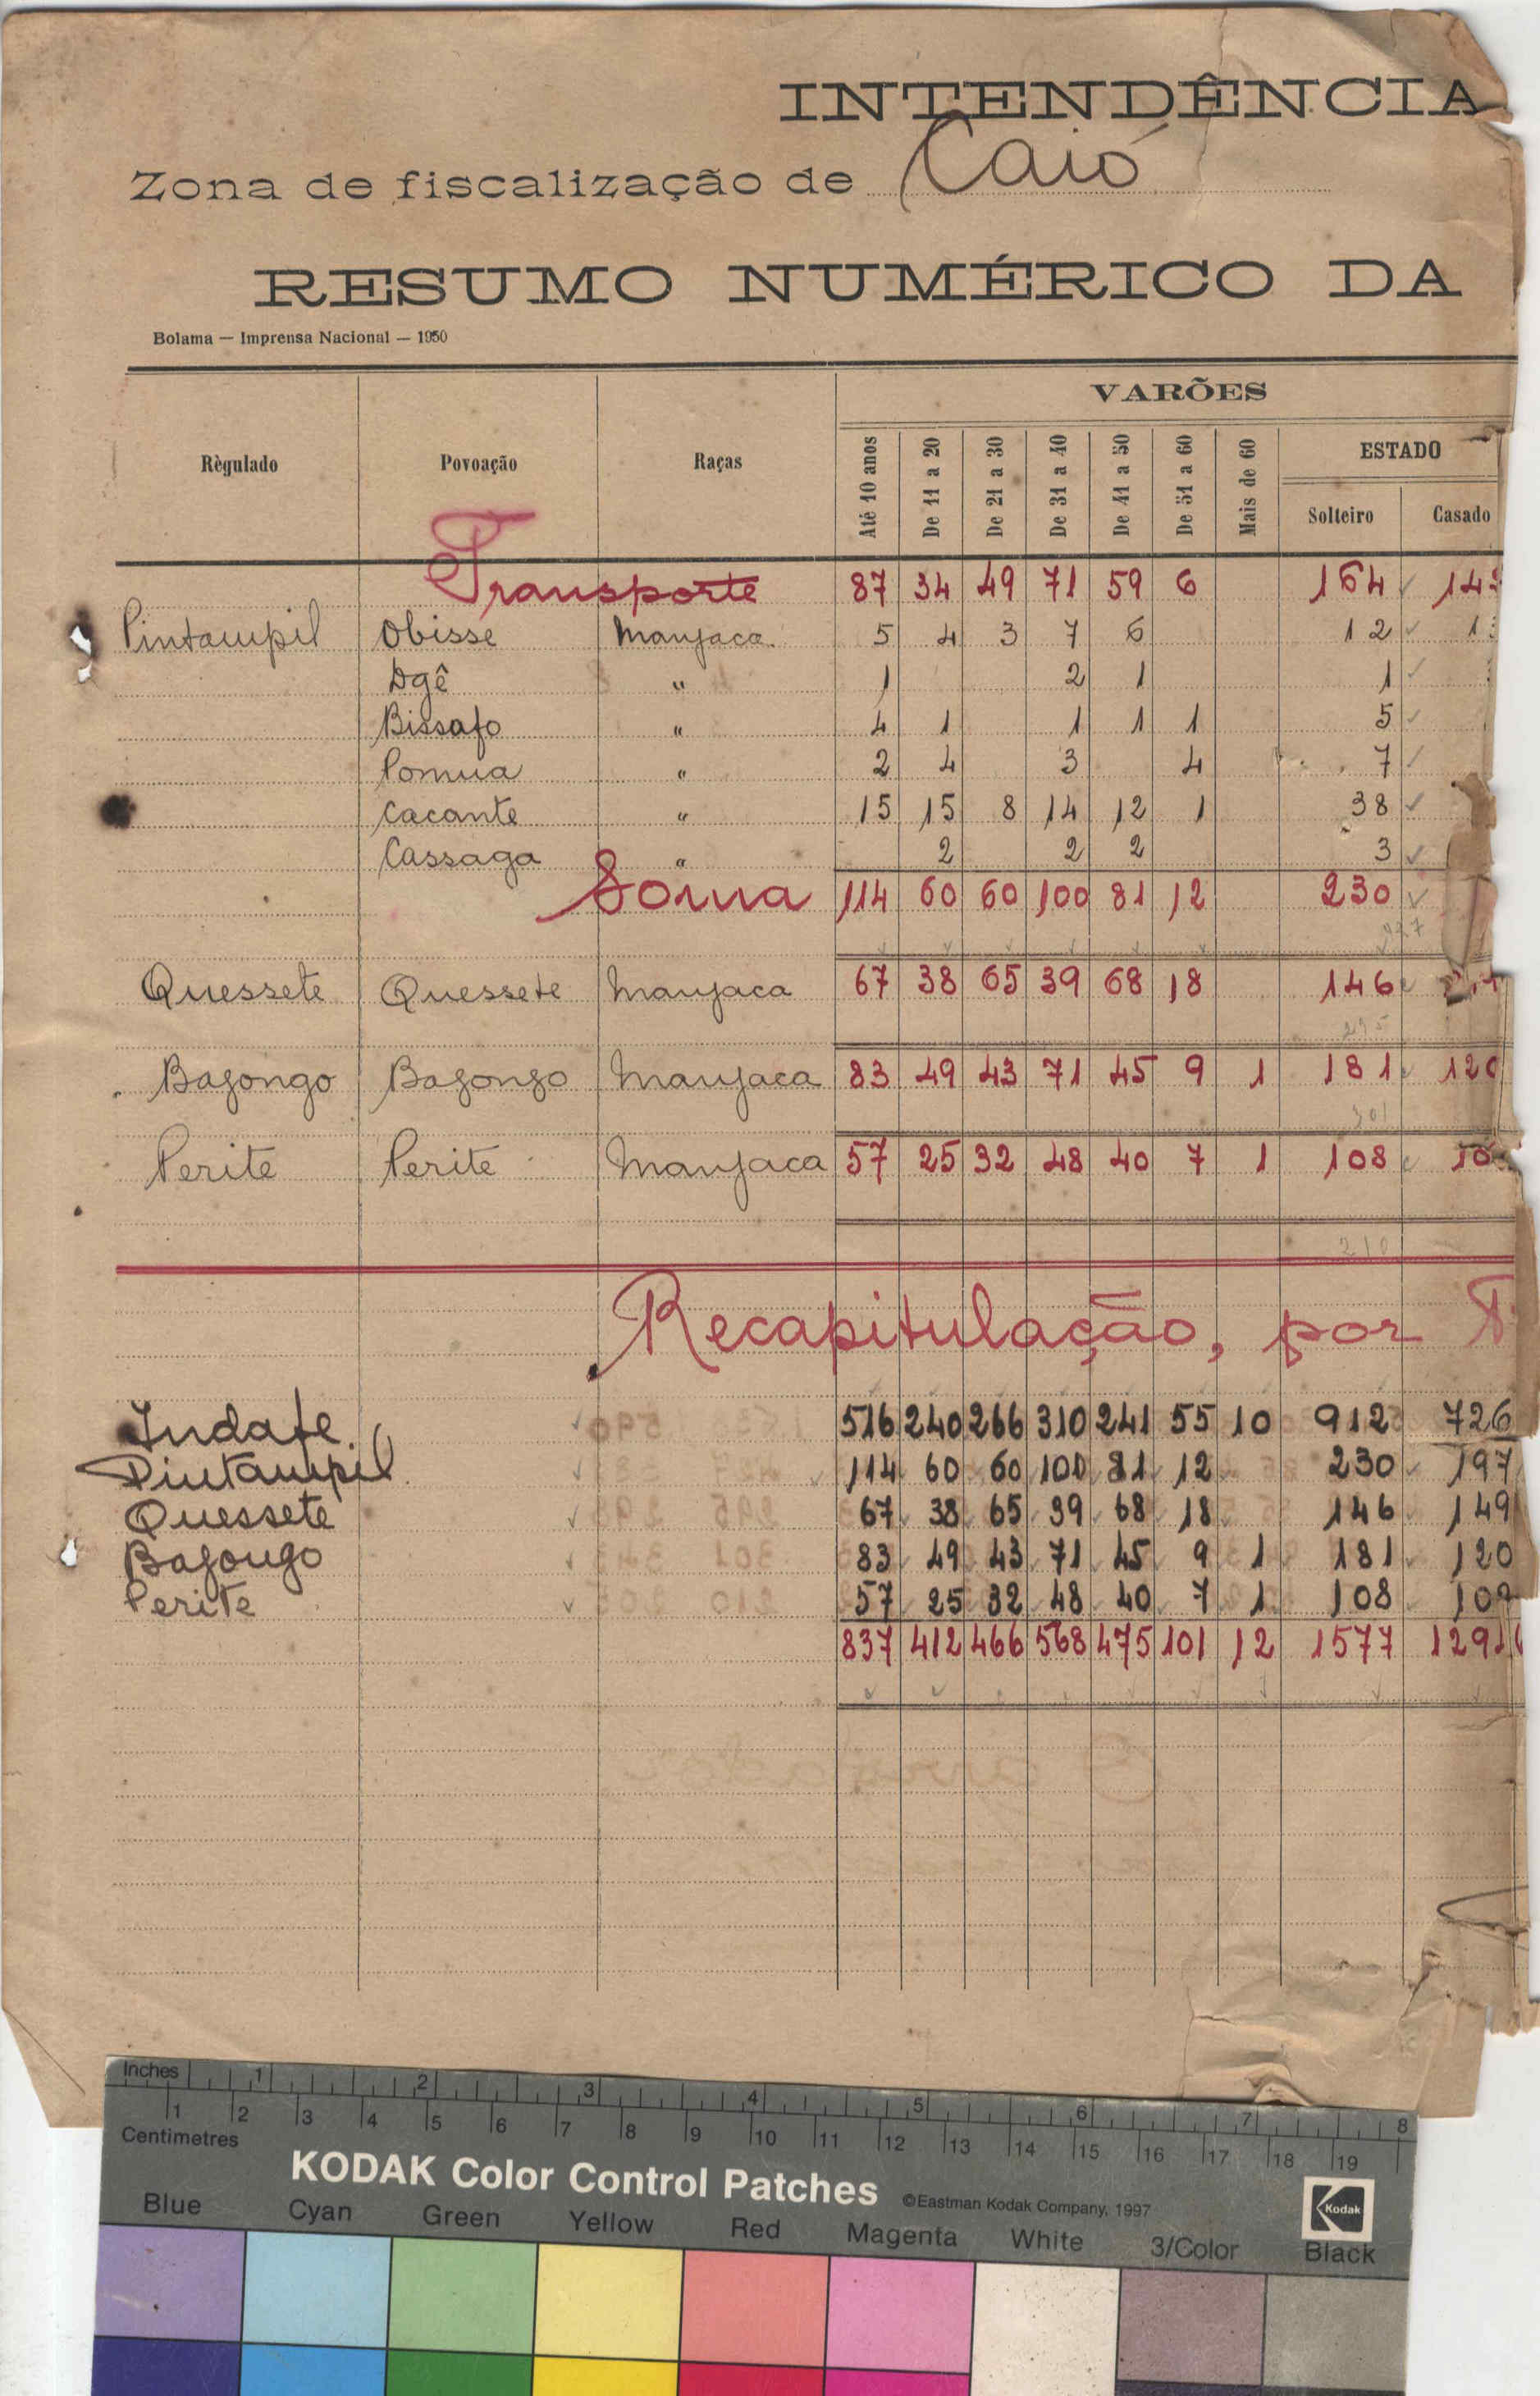 INTENDÊNCIA
Zona de fiscalização de Caió
RESUMO NUMÉRICO DA
Bolama — Imprensa Nacional — 1950
VARÕES
Règulado Povoação Raças Até 10 anos De 11 a 20 De 21 a 30 De 31 a 40 De 41 a 50 De 51 a 60 Mais de 60 ESTADO
Solteiro Casado
Transporte 87 34 49 71 59 6 164
Pintampil Obisse Manjaca 5 4 3 7 6 12
Dgê " 1 2 1 1
Bissafo " 4 1 1 1 1 5
Pomua " 2 4 3 4 7
Cacante " 15 15 8 14 12 1 38
Cassaga " 2 2 2 3
Soma 114 60 60 100 81 12 230
Quessete Quessete Manjaca 67 38 65 39 68 18 146
295
Bajongo Bajongo Manjaca 83 49 43 71 45 9 1 181 120
301
Perite Perite Manjaca 57 25 32 48 40 7 1 108
210
Recapitulação, por
Indafe 516 240 266 310 241 55 10 912 726
Pintampil 114 60 60 100 81 12 230 197
Quessete 67 38 65 39 68 18 146 149
Bajongo 83 49 43 71 45 9 1 181 120
Perite 57 25 32 48 40 7 1 108 102
837 412 466 568 475 101 12 1577
Inches 1 2 3 4 5 6 7 8
Centimetres 1 2 3 4 5 6 7 8 9 10 11 12 13 14 15 16 17 18 19
KODAK Color Control Patches ©Eastman Kodak Company, 1997 Kodak
Blue Cyan Green Yellow Red Magenta White 3/Color Black